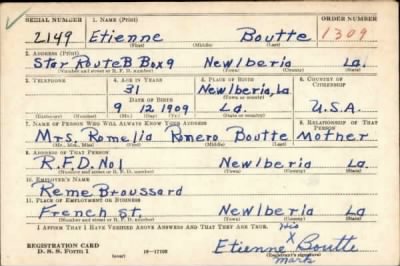 SERIAL NUMBER 1. NAME (Print) ORDER NUMBER
2149 Etienne Boutte 1309
(First) (Middle) (Last)
2. ADDRESS (Print)
Star Route B Box 9 New Iberia La.
(Number and street or R. F. D. number) (Town) (County) (State)
3. TELEPHONE 4. AGE IN YEARS 5. PLACE OF BIRTH 6. COUNTRY OF CITIZENSHIP
31 New Iberia, La
DATE OF BIRTH (Town or county)
9 12 1909 La. U.S.A.
(Exchange) (Number) (Mo.) (Day) (Yr.) (State or country)
7. NAME OF PERSON WHO WILL ALWAYS KNOW YOUR ADDRESS 8. RELATIONSHIP OF THAT PERSON
Mrs. Romelia Romero Boutte Mother
(Mr., Mrs., Miss) (First) (Middle) (Last)
9. ADDRESS OF THAT PERSON
R.F.D. No 1 New Iberia La
(Number and street or R. F. D. number) (Town) (County) (State)
10. EMPLOYER'S NAME
Reme Broussard
11. PLACE OF EMPLOYMENT OR BUSINESS
French st. New Iberia La
(Number and street or R. F. D. number) (Town) (County) (State)
I AFFIRM THAT I HAVE VERIFIED ABOVE ANSWERS AND THAT THEY ARE TRUE.
his
Etienne X Boutte
mark
REGISTRATION CARD
D. S. S. Form 1 (over) (Registrant's signature)